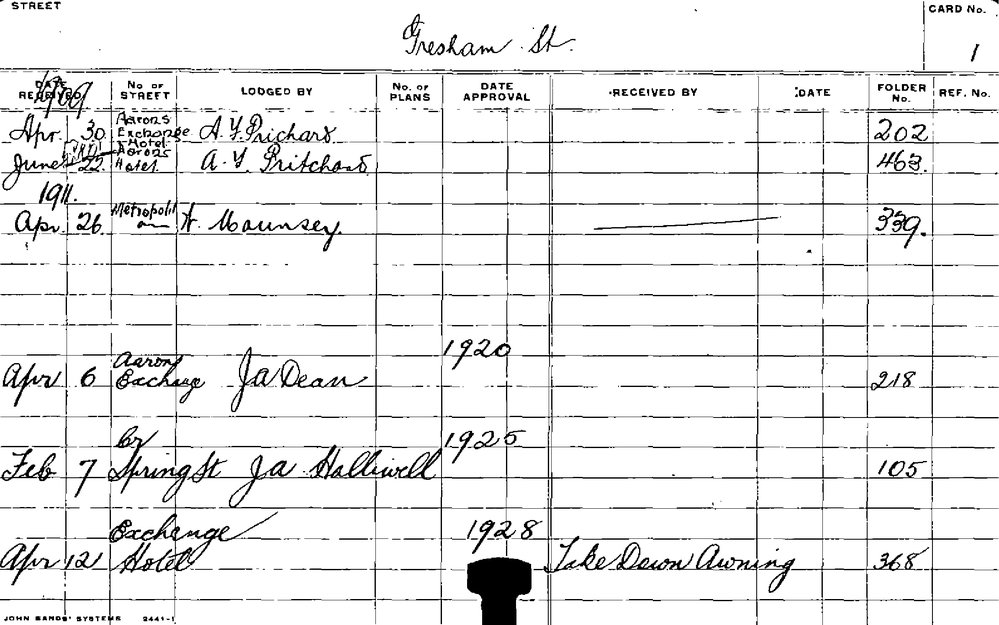 STREET
CARD No.
Gresham St.
1
DATE RECEIVED No OF STREET LODGED BY No. OF PLANS DATE APPROVAL RECEIVED BY DATE FOLDER No. REF. No.
1909
Aarons
Apr. 30. Exchange A. Y. Prichard 202
Hotel
Aarons
June 22. Hotel. A. Y. Pritchard 463.
1911.
Metropolit
Apr. 26. an H. Mounsey. 339.
1920
Aarons
Apr 6 Exchange J A Dean 218
Cr 1925
Feb 7 Spring St J A Halliwell 105
Exchange 1928
Apr 12 Hotel Take Down Awning 368
JOHN SANDS' SYSTEMS 2441-1